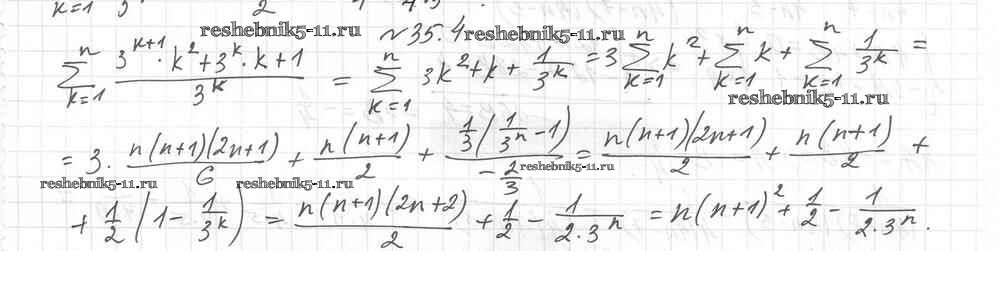 k=1 3 2
reshebnik5-11.ru №35.4 reshebnik5-11.ru
\sum_{k=1}^{n} \frac{3^{k+1} \cdot k^2 + 3^k \cdot k + 1}{3^k} = \sum_{k=1}^{n} 3k^2 + k + \frac{1}{3^k} = 3 \sum_{k=1}^{n} k^2 + \sum_{k=1}^{n} k + \sum_{k=1}^{n} \frac{1}{3^k} =
reshebnik5-11.ru
= 3 \cdot \frac{n(n+1)(2n+1)}{6} + \frac{n(n+1)}{2} + \frac{\frac{1}{3}(\frac{1}{3^n} - 1)}{-\frac{2}{3}} = \frac{n(n+1)(2n+1)}{2} + \frac{n(n+1)}{2} +
reshebnik5-11.ru reshebnik5-11.ru reshebnik5-11.ru
+ \frac{1}{2}(1 - \frac{1}{3^k}) = \frac{n(n+1)(2n+2)}{2} + \frac{1}{2} - \frac{1}{2 \cdot 3^n} = n(n+1)^2 + \frac{1}{2} - \frac{1}{2 \cdot 3^n}.